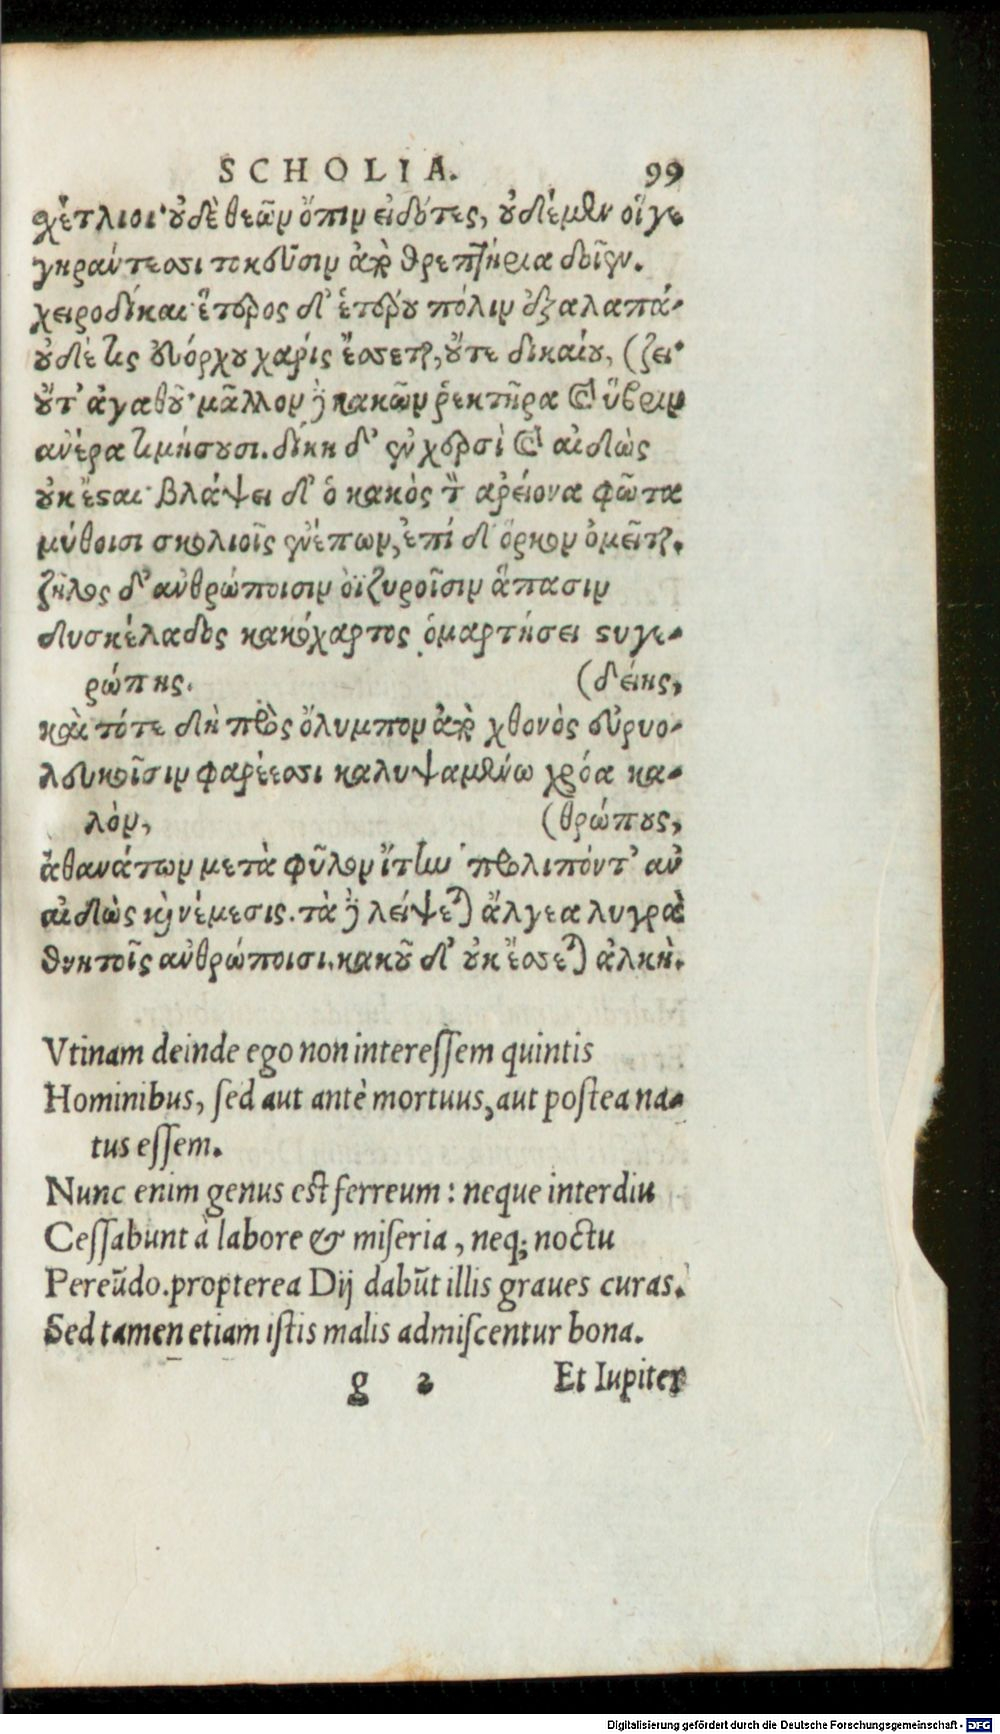 SCHOLIA. 99
χέτλιοι· οὐδὲ θεῶν ὄπιν εἰδότες, οὐδέμὲν οἵ γε
γηράντεσσι τοκεῦσιν ἀπὸ θρεπτήρια δοῖεν.
χειροδίκαι· ἕτερος δ' ἑτέρου πόλιν ἐξαλαπά-
οὐδέ τις εὐόρχου χαρίς ἔσσεται, οὔτε δικαίου, (ξει·
οὔτ' ἀγαθοῦ· μᾶλλον δὲ κακῶν ῥεκτῆρα καὶ ὕβριν
ανέρα τιμήσουσι. δίκη δ' ἐν χερσὶ καὶ αἰδὼς
οὐκ ἔσται· βλάψει δ' ὁ κακὸς τὸν αρείονα φῶτα
μύθοισι σκολιοῖς ἐνέπων, ἐπί δ' όρκον ὀμεῖται.
ζῆλος δ' ανθρώποισιν ὀϊζυροῖσιν ἅπασιν
δυσκέλαδος κακόχαρτος ὁμαρτήσει στυγε-
ρώπης. (δείης,
καὶ τότε δὴ πρὸς ὄλυμπον ἀπὸ χθονὸς εὐρυο-
λευκοῖσιν φαρέεσσι καλυψαμένω χρόα κα-
λὸν, (θρώπους,
ἀθανάτων μετὰ φῦλον ἴτην προλιπόντ' αν
αἰδὼς καὶ νέμεσις. τὰ δὲ λείψεται ἄλγεα λυγρὰ
θνητοῖς ανθρώποισι. κακοῦ δ' οὐκ ἔσσεται ἀλκὴ.
Vtinam deinde ego non interessem quintis
Hominibus, sed aut antè mortuus, aut postea na-
tus essem.
Nunc enim genus est ferreum: neque interdiu
Cessabunt à labore & miseria, neq; noctu
Pereũdo. propterea Dij dabũt illis graues curas.
Sed tamen etiam istis malis admiscentur bona.
g 2 Et Iupiter
Digitalisierung gefördert durch die Deutsche Forschungsgemeinschaft - DFG